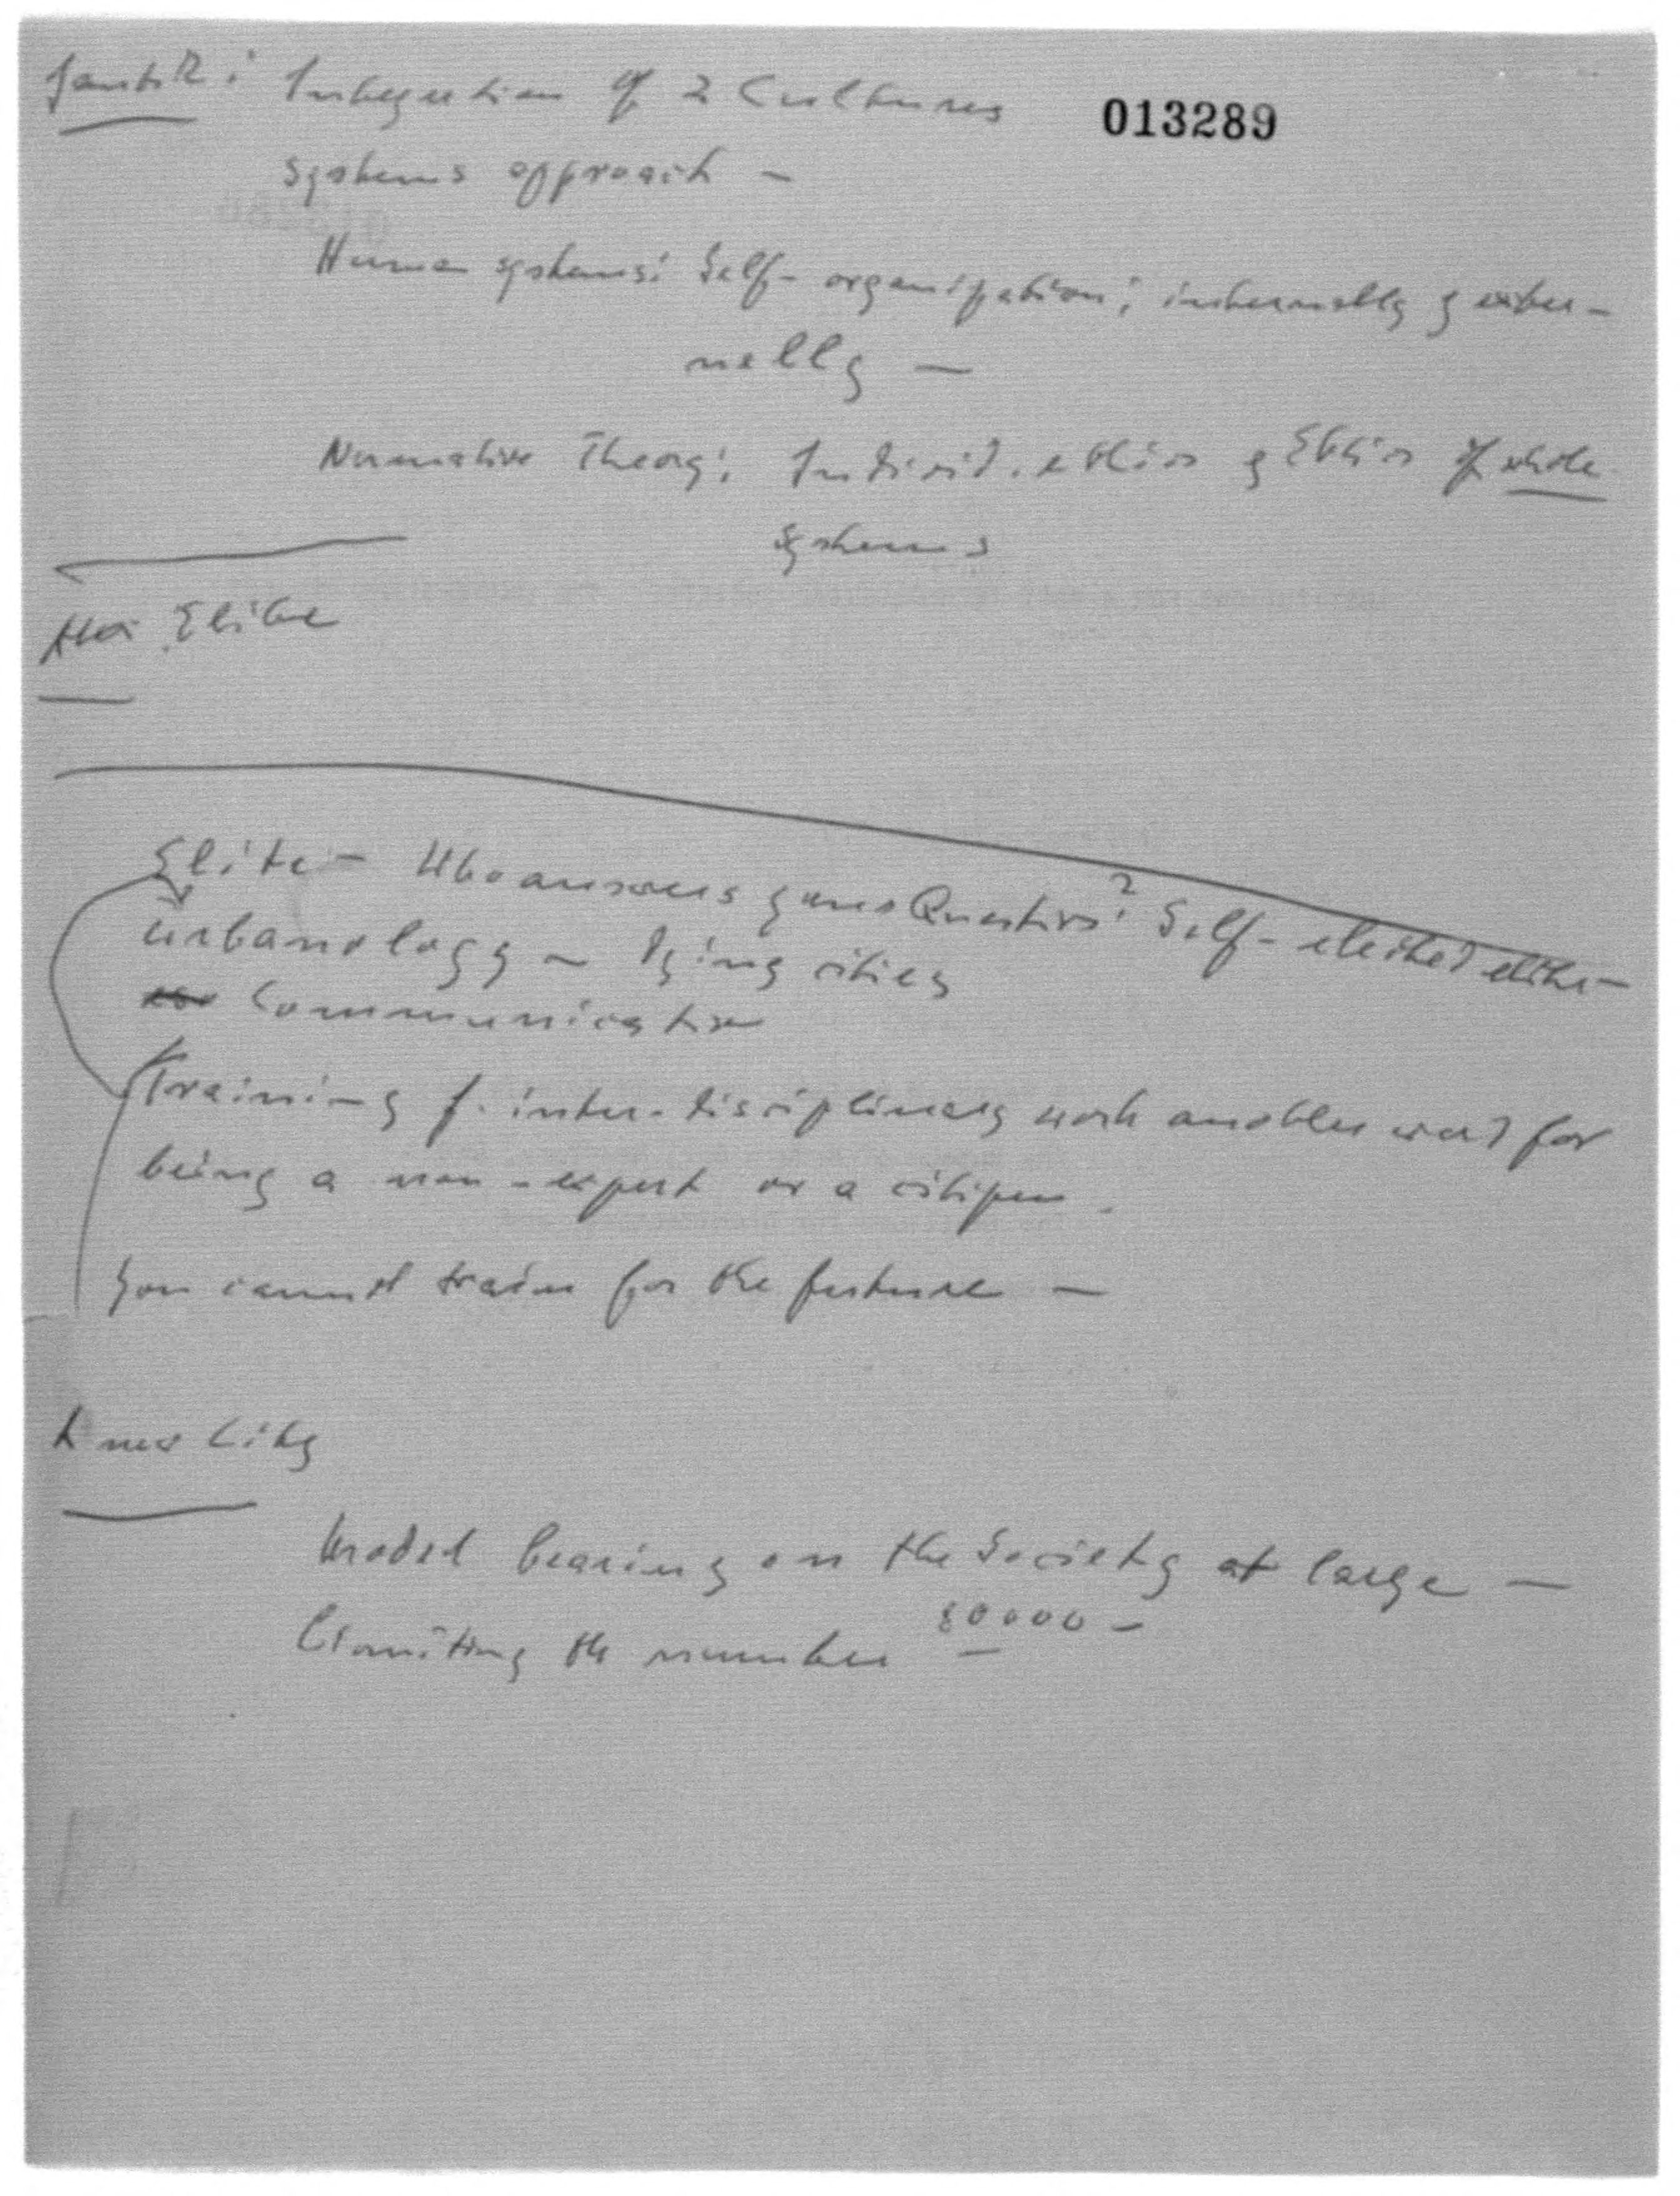 013289
Integration of 2 Cultures
Systems approach —
Human systems: Self-organization; internally & exter-
nally —
Normative Theory: Individ. ethics & Ethics of whole
Systems
Elite
Elite — Who answers Question? Self-elected elite —
Urbanology — Dying cities
Communication
Training f. inter-disciplinary work another word for
being a non-expert or a citizen.
You cannot train for the future —
A new City
Model bearing on the Society at large —
80000 —
Limiting the number